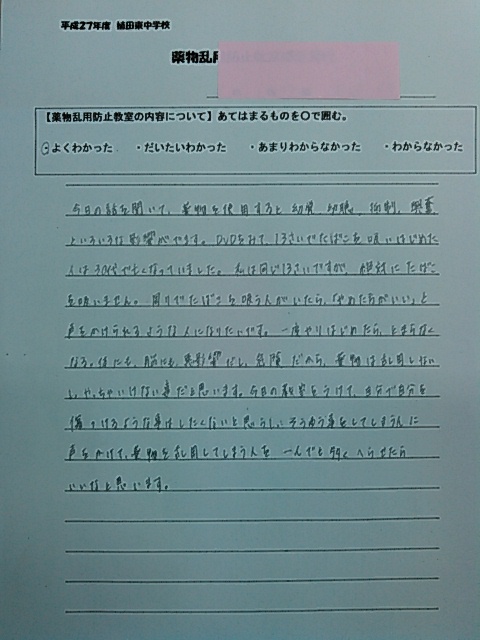 平成27年度 植田東中学校
薬物乱用
【薬物乱用防止教室の内容について】あてはまるものを〇で囲む。
・よくわかった ・だいたいわかった ・あまりわからなかった ・わからなかった
今日の話を聞いて、薬物を使用すると幻覚、幻聴、抑制、興奮
といろいろな影響がでます。DVDをみて、13さいでたばこを吸いはじめた
人は30代で亡くなっていました。私は同じ13さいですが、絶対にたばこ
を吸いません。周りでたばこを吸う人がいたら、「やめた方がいい」と
声をかけられるような人になりたいです。一度やりはじめたら、とまらなく
なる。体にも、脳にも、悪影響だし、危険だから、薬物は乱用しない
し、やっちゃいけない事だと思います。今日の教室をうけて、自分で自分を
傷つけるような事はしたくないと思うし、そうゆう事をしてしまう人に
声をかけて、薬物を乱用してしまう人を一人でも多くへらせたら
いいなと思います。